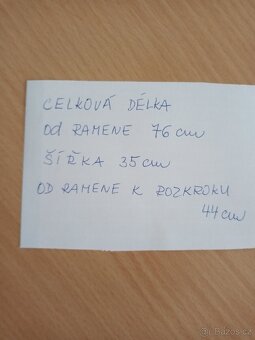 CELKOVÁ DÉLKA
Od RAMENE 76 cm
ŠÍŘKA 35 cm
OD RAMENE K ROZKROKU
44 cm
Bazos.cz